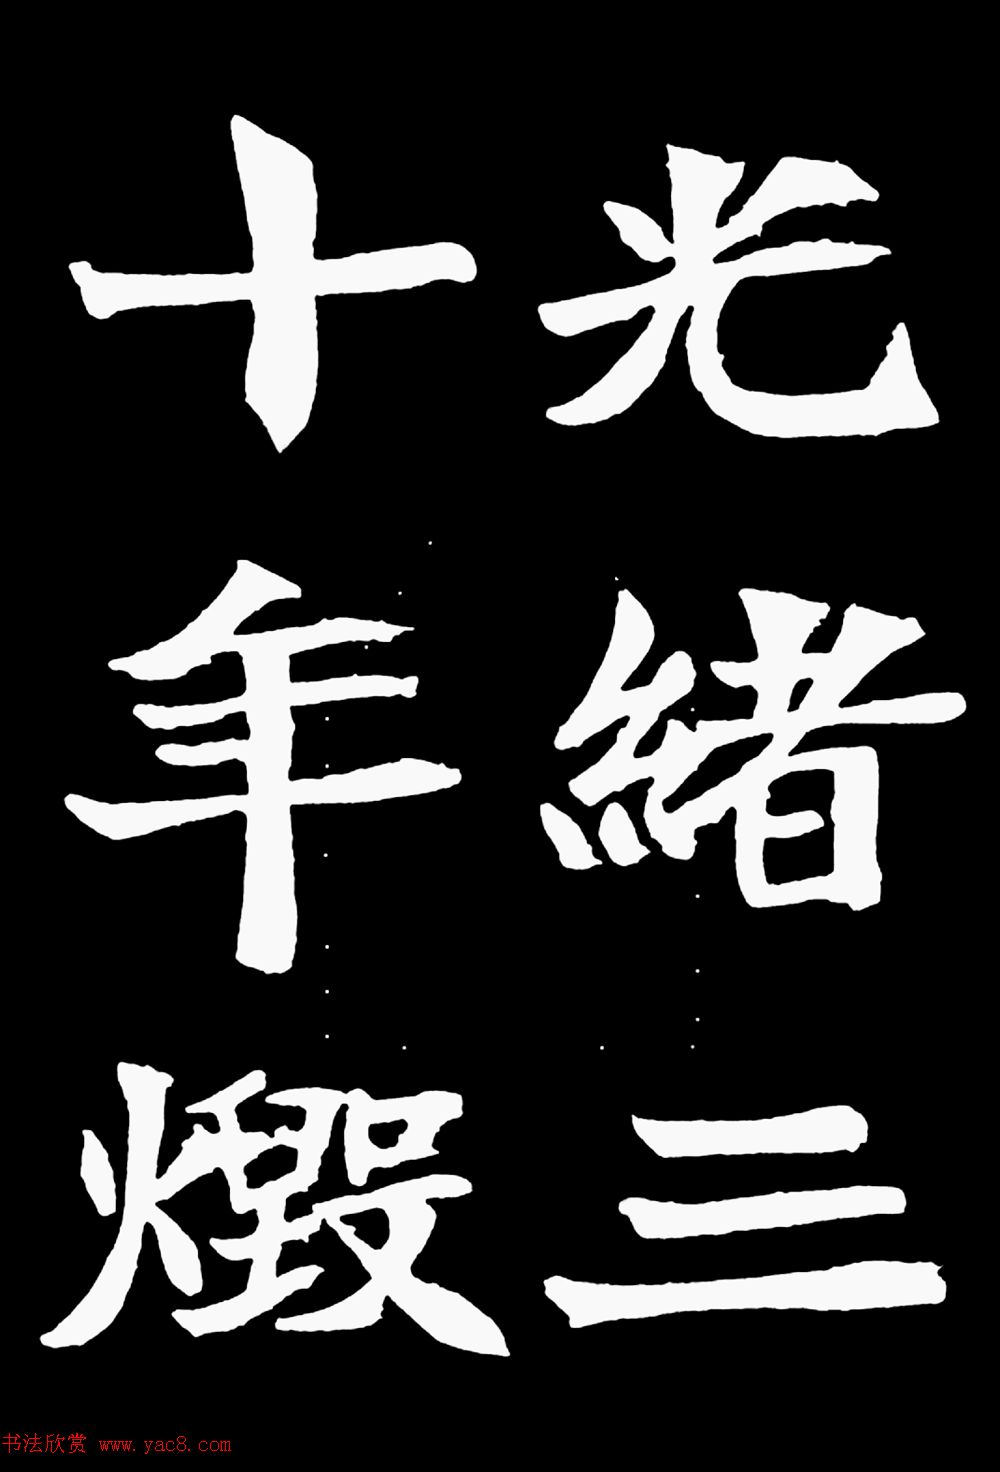 光緒三
十年燬
书法欣赏 www.yac8.com